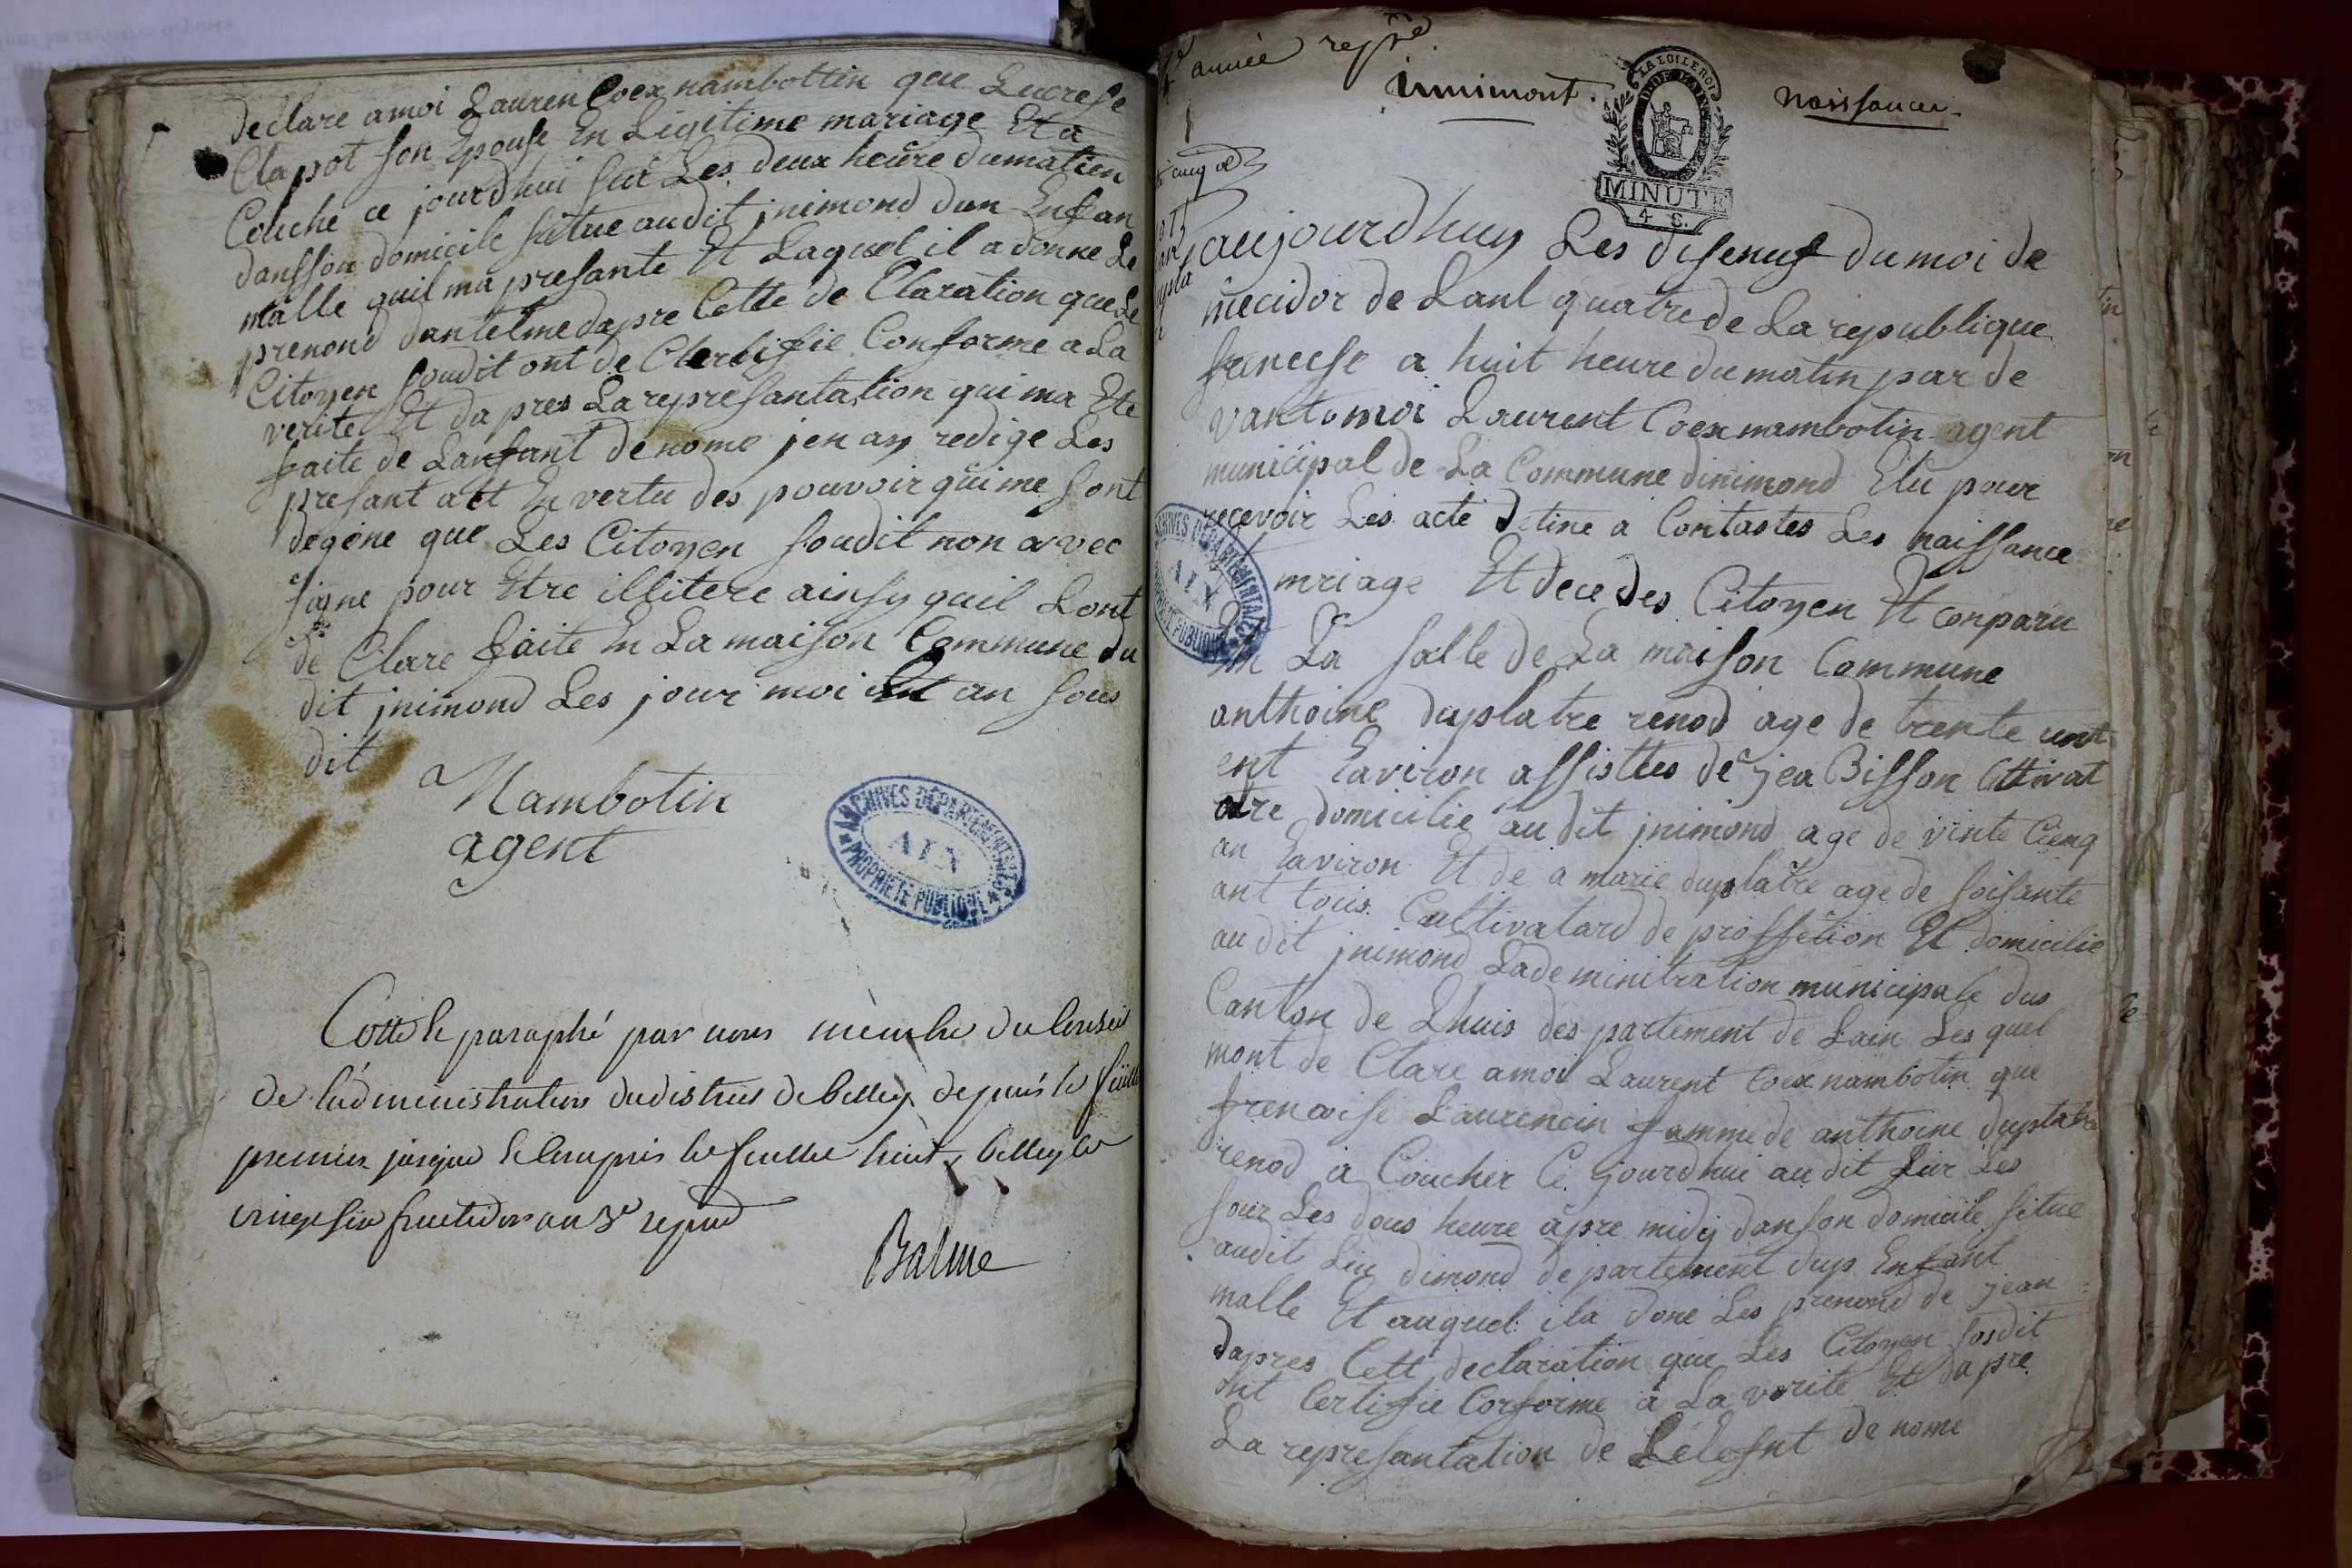 declare amoi Lauren Coex nambottin que Lucrese
Clapot son Epouse En Legitime mariage Et a
Couche ce jourdhui sur Les deux heure dumatien
dansson domicile situe audit jnimond dun Enfan
malle quil ma presante Et Laquel il a donne Le
prenond dantelme dapre Cette de Claration que Le
Citoyen soudit ont de Clertifie Conforme a La
verite Et da pres La represantation qui ma Ete
faite de Lanfant de nome jen ay redige Les
presant act En vertu des pouvoir qui me sont
degene que Les Citoyen soudit non avec
signe pour Etre illitere ainsy quil Lont
de Clare faite En La maison Commune du
dit jnimond Les jour moi Et an sous
dit
Nambotin
agent
ARCHIVES DEPARTEMENTALES
AIN
PROPRIETE PUBLIQUE
Cotté & paraphé par nous membre du Conseil
de l'administration du district de belley depuis le feuille
premier jusque & Compris le feuillet huit, belley le
vingt six fructidor an 3e repud
Balme
4e année repne
innimont.
Naissances.
LA LOI LE ROI
MINUTE
4 S.
aujourdhuy Les disenuf du moi de
mecidor de Lanl quatre de La republique
francese a huit heure du matin par de
vantomoi Laurent Coex nambotin agent
municipal de La Commune dinimond Elu pour
recevoir Les acte detine a Contastes Les naissance
mriage Et dece des Citoyen Et conparu
En La salle de La maison Commune
anthoine duplatre renod age de trente unt
ent Eaviron assistes de jea Bisson Cttivat
atre domicilie au dit jnimond age de vinte Cienq
an Eaviron Et de a marie duplatre age de soisante
ant tous Cultivatard de prossetion Et domicilie
au dit jnimond Lade minitration municipale dus
Canton de Lhuis des partement de Lain Les quel
mont de Clare amoi Laurent Coex nambotin que
frencoise Laurencin famme de anthoine duplatre
renod a Coucher Ce jourdhui au dit Liur Les
sour Les dous heure apre midy danson domicile situe
audit Liu dimond departement dup Enfant
malle Et auquel ila done Les prenond de jean
dapres Cett declaration que Les Citoyen sosdit
ont Certifie Corforme a La verite Et dapre
La represantation de Lelesnt de nome